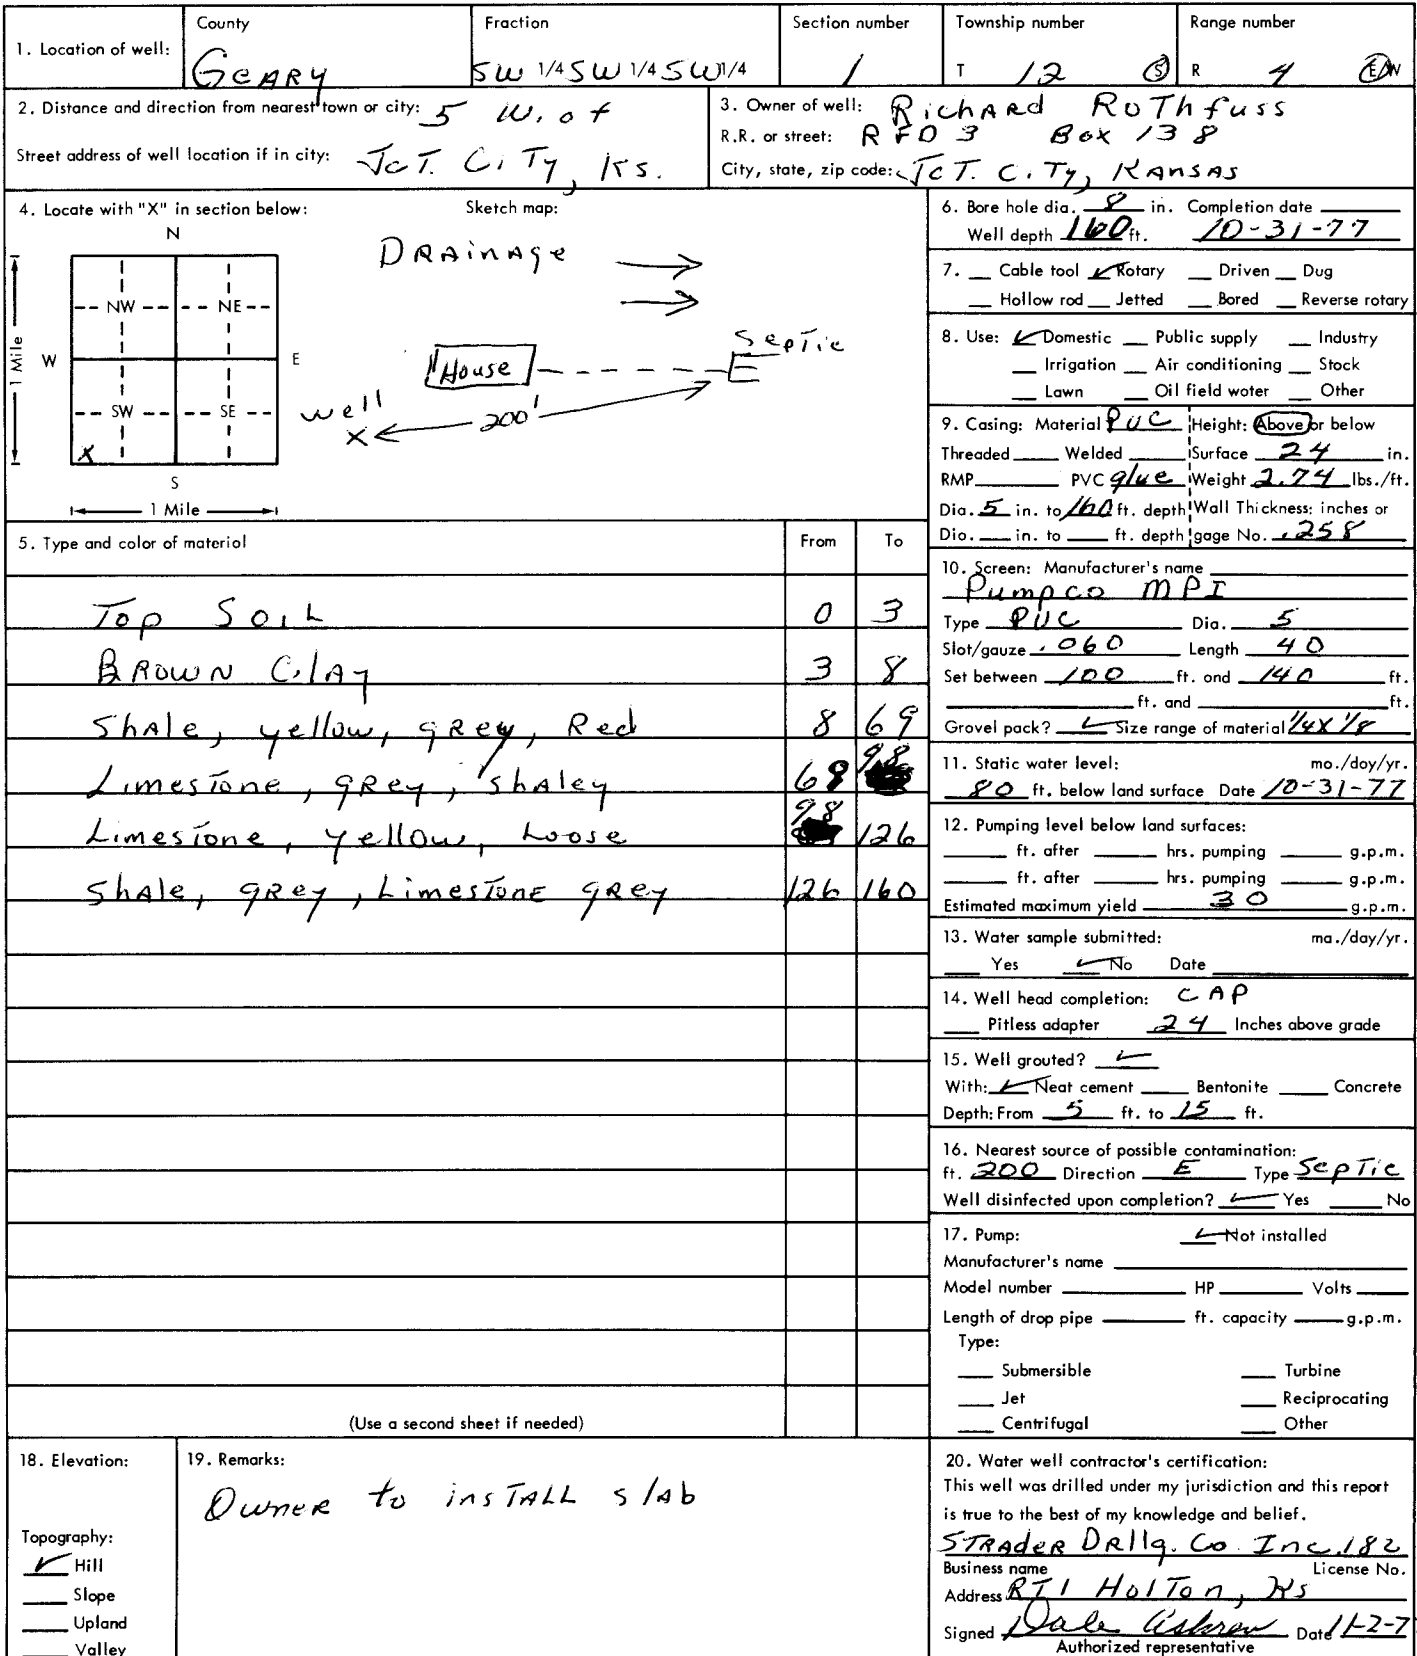 1. Location of well: County GEARY Fraction SW 1/4 SW 1/4 SW 1/4 Section number 1 Township number T 12 S Range number R 4 E/W
2. Distance and direction from nearest town or city: 5 W. of
Street address of well location if in city: JCT. CITY, KS.
3. Owner of well: Richard Rothfuss
R.R. or street: RFD 3 Box 138
City, state, zip code: JCT. CITY, KANSAS
4. Locate with "X" in section below: Sketch map:
N
NW NE
W E
SW SE
X
S
1 Mile
1 Mile
DRAinAge
House
Septic
well
X 200'
5. Type and color of material From To
Top SOIL 0 3
BROWN ClAy 3 8
ShAle, yellow, gRey, Red 8 69
LimesTone, gRey, shAley 69 98
LimesTone, yellow, Loose 98 126
ShAle, gRey, LimesTone gRey 126 160
(Use a second sheet if needed)
6. Bore hole dia. 8 in. Completion date
Well depth 160 ft. 10-31-77
7. Cable tool ✓ Rotary Driven Dug
Hollow rod Jetted Bored Reverse rotary
8. Use: ✓ Domestic Public supply Industry
Irrigation Air conditioning Stock
Lawn Oil field water Other
9. Casing: Material PVC Height: Above or below
Threaded Welded Surface 24 in.
RMP PVC glue Weight 2.74 lbs./ft.
Dia. 5 in. to 160 ft. depth Wall Thickness: inches or
Dia. in. to ft. depth gage No. .258
10. Screen: Manufacturer's name
Pumpco MPI
Type PVC Dia. 5
Slot/gauze .060 Length 40
Set between 100 ft. and 140 ft.
ft. and ft.
Gravel pack? ✓ Size range of material 1/4 X 1/8
11. Static water level: mo./day/yr.
80 ft. below land surface Date 10-31-77
12. Pumping level below land surfaces:
ft. after hrs. pumping g.p.m.
ft. after hrs. pumping g.p.m.
Estimated maximum yield 30 g.p.m.
13. Water sample submitted: mo./day/yr.
Yes ✓ No Date
14. Well head completion: CAP
Pitless adapter 24 Inches above grade
15. Well grouted? ✓
With: ✓ Neat cement Bentonite Concrete
Depth: From 5 ft. to 15 ft.
16. Nearest source of possible contamination:
ft. 200 Direction E Type SepTic
Well disinfected upon completion? ✓ Yes No
17. Pump: ✓ Not installed
Manufacturer's name
Model number HP Volts
Length of drop pipe ft. capacity g.p.m.
Type:
Submersible Turbine
Jet Reciprocating
Centrifugal Other
18. Elevation:
Topography:
✓ Hill
Slope
Upland
Valley
19. Remarks:
OwneR to insTALL slAb
20. Water well contractor's certification:
This well was drilled under my jurisdiction and this report
is true to the best of my knowledge and belief.
STRAdeR DRllg. Co. Inc. 182
Business name License No.
Address RT1 HolTon, Ks
Signed Dale Askren Date 11-2-7
Authorized representative